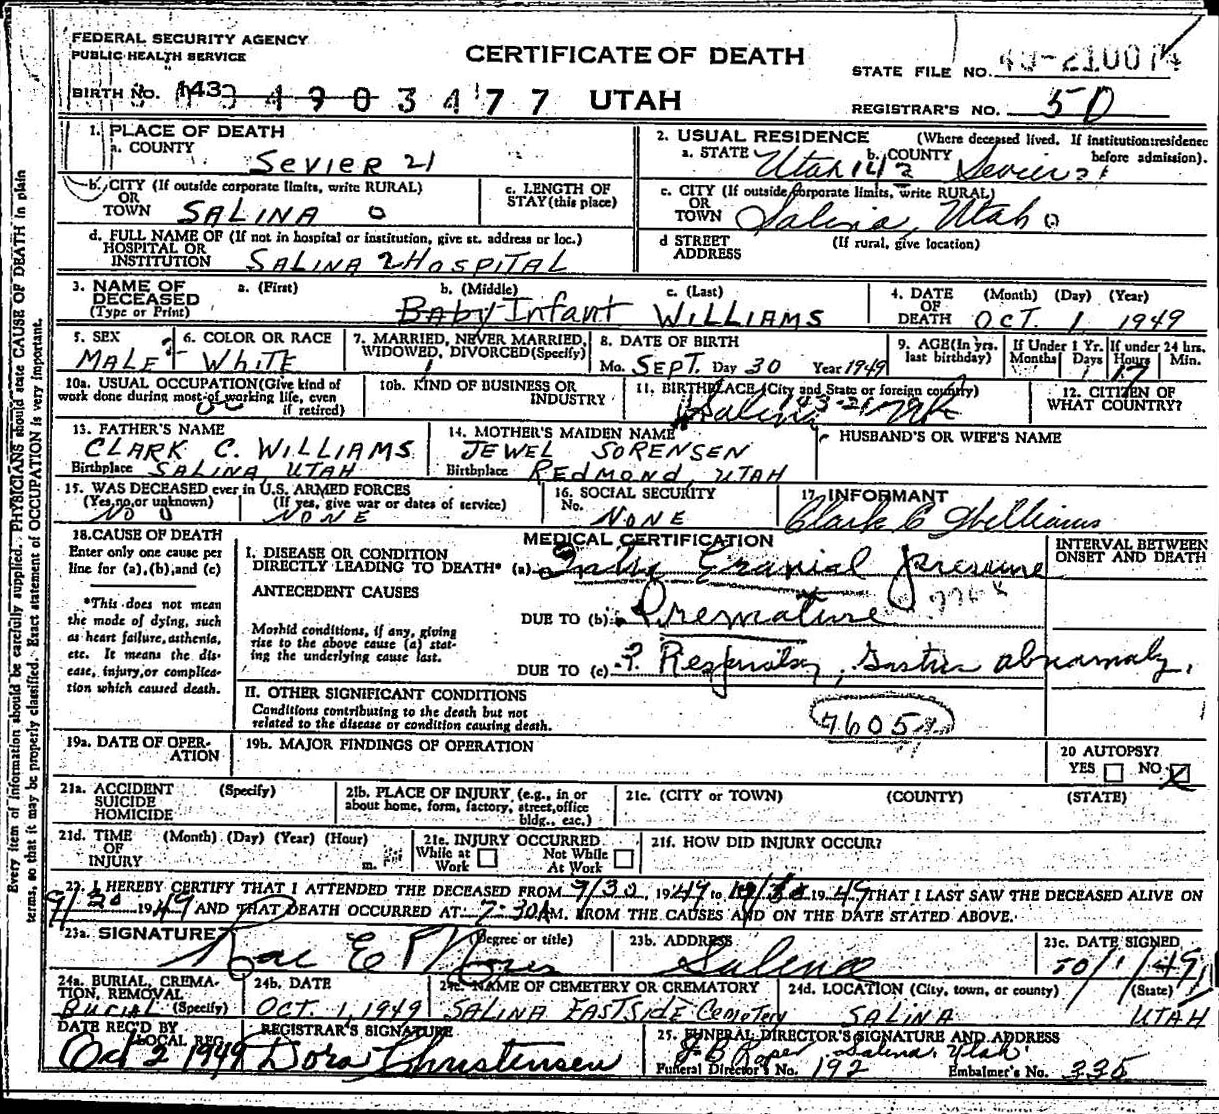 FEDERAL SECURITY AGENCY
PUBLIC HEALTH SERVICE
CERTIFICATE OF DEATH
STATE FILE NO. 49-210074
BIRTH NO. 143 4903477 UTAH
REGISTRAR'S NO. 50
1. PLACE OF DEATH
a. COUNTY
SEVIER 21
2. USUAL RESIDENCE (Where deceased lived. If institution: residence before admission).
a. STATE Utah 142 b. COUNTY Sevier 21
b. CITY (If outside corporate limits, write RURAL)
OR
TOWN SALINA 0
c. LENGTH OF
STAY (this place)
c. CITY (If outside corporate limits, write RURAL)
OR
TOWN Salina, Utah 0
d. FULL NAME OF (If not in hospital or institution, give st. address or loc.)
HOSPITAL OR
INSTITUTION SALINA 2 HOSPITAL
d STREET (If rural, give location)
ADDRESS
3. NAME OF
DECEASED
(Type or Print)
a. (First) b. (Middle) c. (Last)
Baby Infant WILLIAMS
4. DATE (Month) (Day) (Year)
OF
DEATH OCT. 1 1949
5. SEX
MALE
6. COLOR OR RACE
WHITE
7. MARRIED, NEVER MARRIED,
WIDOWED, DIVORCED (Specify)
1
8. DATE OF BIRTH
Mo. SEPT. Day 30 Year 1949
9. AGE (In yrs.
last birthday)
If Under 1 Yr. If under 24 hrs.
Months Days Hours Min.
1 17
10a. USUAL OCCUPATION (Give kind of
work done during most of working life, even
if retired)
10b. KIND OF BUSINESS OR
INDUSTRY
11. BIRTHPLACE (City and State or foreign country)
Salina 43-21
12. CITIZEN OF
WHAT COUNTRY?
13. FATHER'S NAME
CLARK C. WILLIAMS
Birthplace SALINA, UTAH
14. MOTHER'S MAIDEN NAME
JEWEL SORENSEN
Birthplace REDMOND, UTAH
HUSBAND'S OR WIFE'S NAME
15. WAS DECEASED ever in U.S. ARMED FORCES
(Yes, no, or unknown) (If yes, give war or dates of service)
NO 0 NONE
16. SOCIAL SECURITY
No.
NONE
17. INFORMANT
Clark C Williams
18. CAUSE OF DEATH
Enter only one cause per
line for (a), (b), and (c)
*This does not mean
the mode of dying, such
as heart failure, asthenia,
etc. It means the dis-
ease, injury, or complica-
tion which caused death.
MEDICAL CERTIFICATION
INTERVAL BETWEEN
ONSET AND DEATH
I. DISEASE OR CONDITION
DIRECTLY LEADING TO DEATH* (a) Cranial pressure
ANTECEDENT CAUSES
776X
DUE TO (b) Premature
Morbid conditions, if any, giving
rise to the above cause (a) stat-
ing the underlying cause last.
DUE TO (c) ? Respiratory, Gastric abnormaly.
II. OTHER SIGNIFICANT CONDITIONS
Conditions contributing to the death but not
related to the disease or condition causing death.
7605
19a. DATE OF OPER-
ATION
19b. MAJOR FINDINGS OF OPERATION
20 AUTOPSY?
YES NO X
21a. ACCIDENT (Specify)
SUICIDE
HOMICIDE
21b. PLACE OF INJURY (e.g., in or
about home, form, factory, street, office
bldg., etc.)
21c. (CITY or TOWN) (COUNTY) (STATE)
21d. TIME (Month) (Day) (Year) (Hour)
OF
INJURY m.
21e. INJURY OCCURRED
While at Not While
Work At Work
21f. HOW DID INJURY OCCUR?
22. I HEREBY CERTIFY THAT I ATTENDED THE DECEASED FROM 9/30, 1949 to 1949 THAT I LAST SAW THE DECEASED ALIVE ON
9/30 1949 AND THAT DEATH OCCURRED AT 7:30A M. FROM THE CAUSES AND ON THE DATE STATED ABOVE.
23a. SIGNATURE (Degree or title)
Rae E Noyes
23b. ADDRESS
Salina
23c. DATE SIGNED
10/1/49
24a. BURIAL, CREMA-
TION, REMOVAL
BURIAL (Specify)
24b. DATE
OCT. 1, 1949
24c. NAME OF CEMETERY OR CREMATORY
SALINA EASTSIDE Cemetery
24d. LOCATION (City, town, or county) (State)
SALINA UTAH
DATE REC'D BY
LOCAL REG.
Oct 2 1949
REGISTRAR'S SIGNATURE
Dora Christensen
25. FUNERAL DIRECTOR'S SIGNATURE AND ADDRESS
J B Roper Salina, Utah
Funeral Director's No. 192 Embalmer's No. 335
Every item of information should be carefully supplied. PHYSICIANS should state CAUSE OF DEATH in plain
terms, so that it may be properly classified. Exact statement of OCCUPATION is very important.